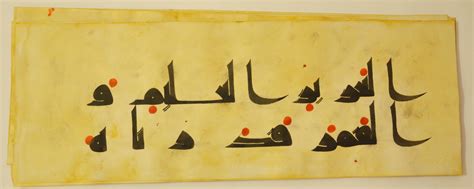 العزيز العليم و
القمر قدرناه